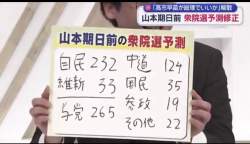 「高市早苗が総理でいいか」解散
山本期日前 衆院選予測修正
山本期日前の衆院選予測
自民 232 中道 124
維新 33 国民 35
与党 265 参政 19
その他 22